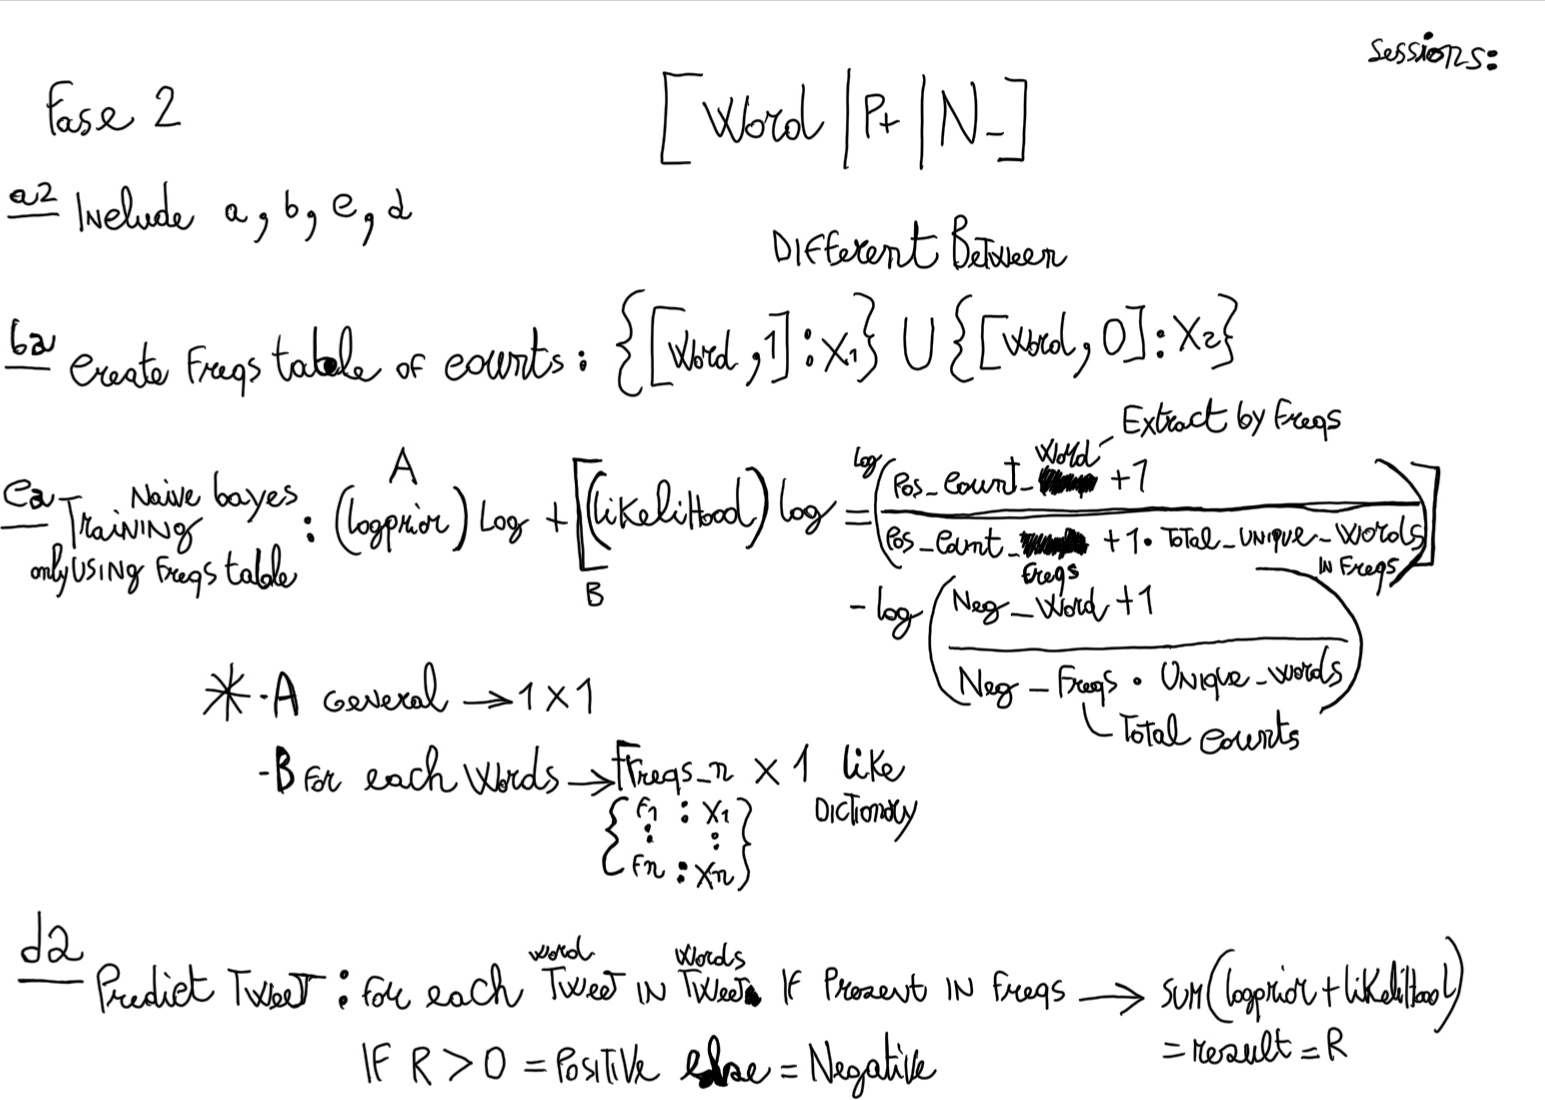 Sessions:
Fase 2
[Word | P+ | N-]
a2 Include a, b, c, d
Different Between
b2 Create Freqs table of counts: {[Word, 1]: X1} U {[Word, 0]: X2}
Extract by Freqs
c2 Naive bayes
Training
only using Freqs table
: (logprior) Log + [(likelihood) log = log (Pos_Count_ Word +1
A
B
Pos_Count_ Freqs +1 · Total_Unique_Words in Freqs)]
- log (Neg_Word +1
Neg_Freqs · Unique_words)
Total counts
* - A General → 1 X 1
- B For each Words → Freqs_n X 1 like Dictionary
{F1 : X1
: :
Fn : Xn}
d2 Predict Tweet: for each word Tweet in Words Tweet If Present in Freqs → SUM(logprior + likelihood)
= result = R
IF R > 0 = Positive else = Negative